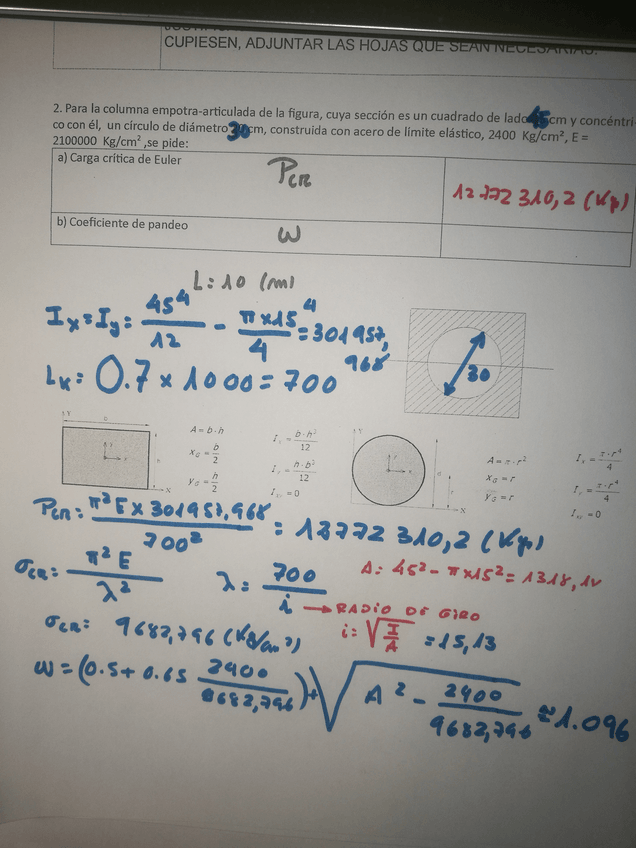 CUPIESEN, ADJUNTAR LAS HOJAS QUE SEAN NECESARIAS.
2. Para la columna empotra-articulada de la figura, cuya sección es un cuadrado de lado 45 cm y concéntri
co con él, un círculo de diámetro 30 cm, construida con acero de límite elástico, 2400 Kg/cm², E =
2100000 Kg/cm² ,se pide:
a) Carga crítica de Euler
PCR
12772310,2 (Kp)
b) Coeficiente de pandeo
ω
L: 10 (m)
Ix = Iy = 45⁴/12 - π×15⁴/4 = 301957,968
LK = 0.7 × 1000 = 700
30
A = b · h
xG = b/2
yG = h/2
Ix = b·h³/12
Iy = h·b³/12
Ixy = 0
A = π · r²
xG = r
yG = r
Ix = π·r⁴/4
Iy = π·r⁴/4
Ixy = 0
PCR = π² E × 301957,968 / 700² = 12772310,2 (Kp)
σCR = π² E / λ²
λ = 700 / i
→ RADIO DE GIRO
A: 45² - π×15² = 1318,14
i = √(I/A) = 15,13
σCR: 9682,796 (Kg/cm²)
ω = (0.5 + 0.65 2400/9682,796) + √(A² - 2400/9682,796) ≅ 1.096